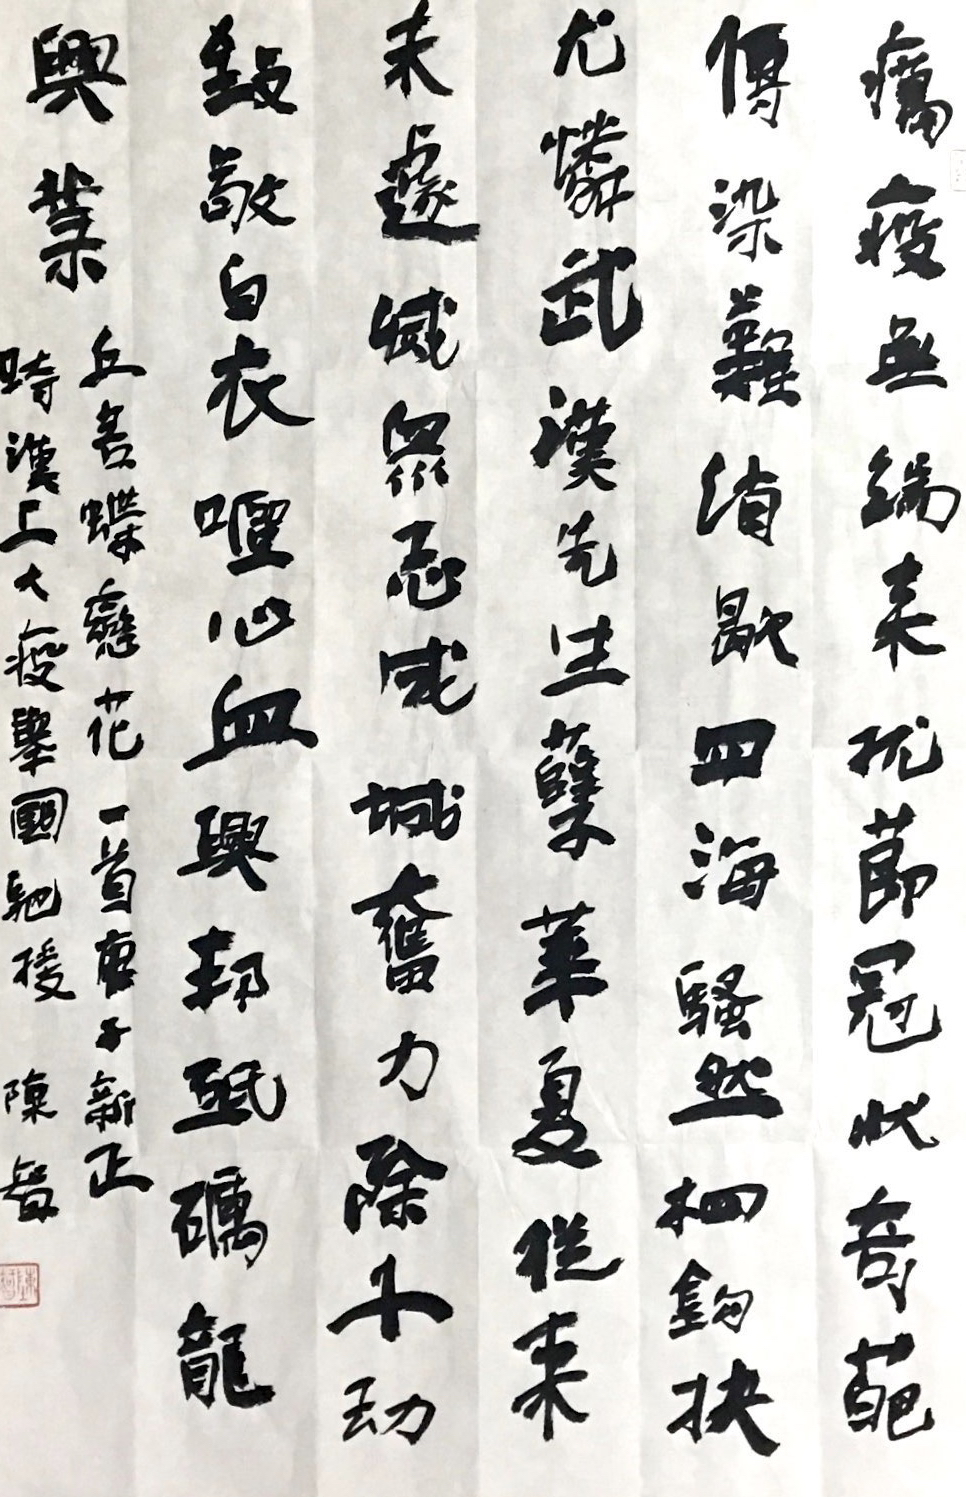 癘疫無端来擾節冠狀奇葩
傳染難消歇四海騷然柶鉤抉
尤憐武漢先生孽華夏從来
未遽滅衆志成城奮力除小劫
毅敢白衣嘔心血興邦砥礪龍
興業
丘吾蝶戀花一首庚子新正
時漢上大疫舉國馳援 陳智